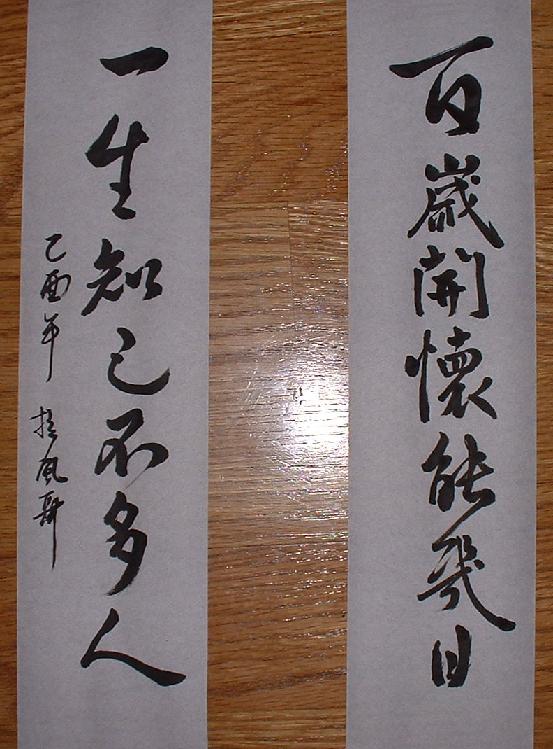 百歲開懷能幾日
一生知己不多人
乙酉年